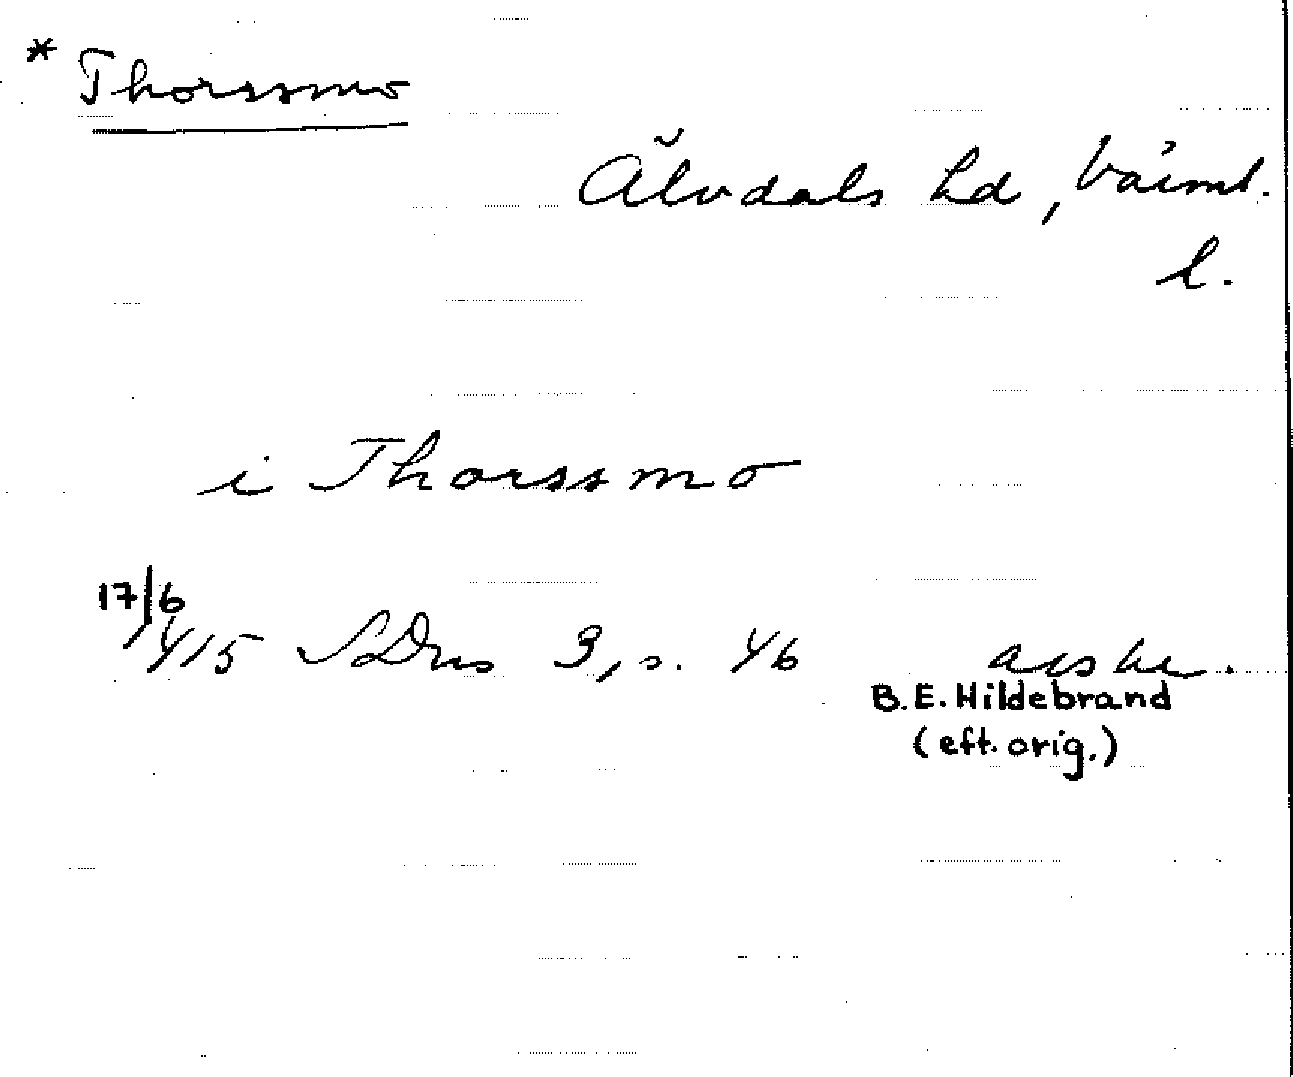 * Thorssmo
Älvdals hd, Värml.
l.
i Thorssmo
17/6
1415 SDns 3, s. 46 avskr.
B. E. Hildebrand
(eft. orig.)